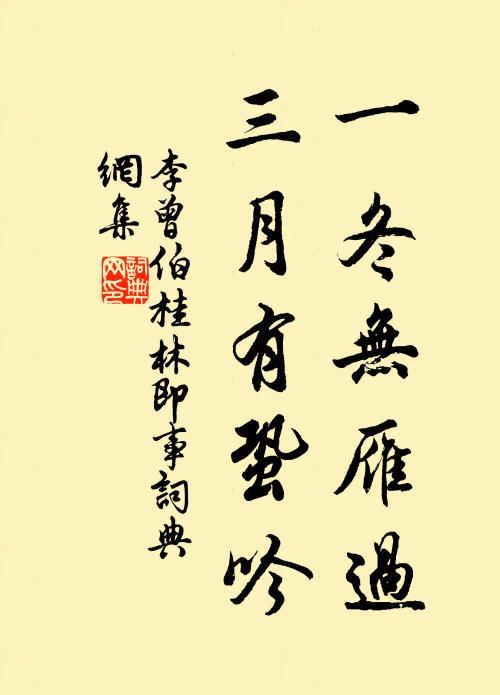 一冬無雁過
三月有蛩吟
李曾伯桂林即事詞典
網集
詞典網印